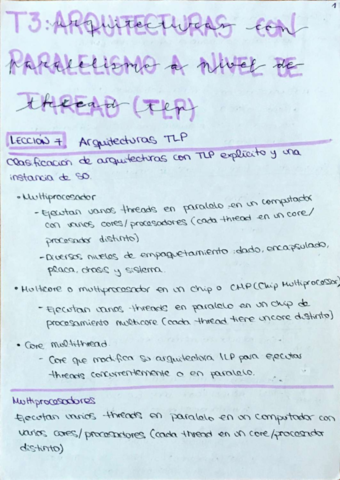 1
T3: ARQUITECTURAS CON
PARALELISMO A NIVEL DE
THREAD (TLP)
LECCIÓN 7 Arquitecturas TLP
Clasificación de arquitecturas con TLP explícito y una
instancia de SO
• Multiprocesador
- Ejecutan varios threads en paralelo en un computador
con varios cores/procesadores (cada thread en un core/
procesador distinto)
- Diversos niveles de empaquetamiento: dado, encapsulado,
placa, chasis y sistema.
• Multicore o multiprocesador en un chip o CMP (Chip Multiprocessor)
- Ejecutan varios threads en paralelo en un chip de
procesamiento multicore (cada thread tiene un core distinto)
• Core multithread
- Core que modifica su arquitectura ILP para ejecutar
threads concurrentemente o en paralelo.
Multiprocesadores
Ejecutan varios threads en paralelo en un computador con
varios cores/procesadores (cada thread en un core/procesador
distinto)